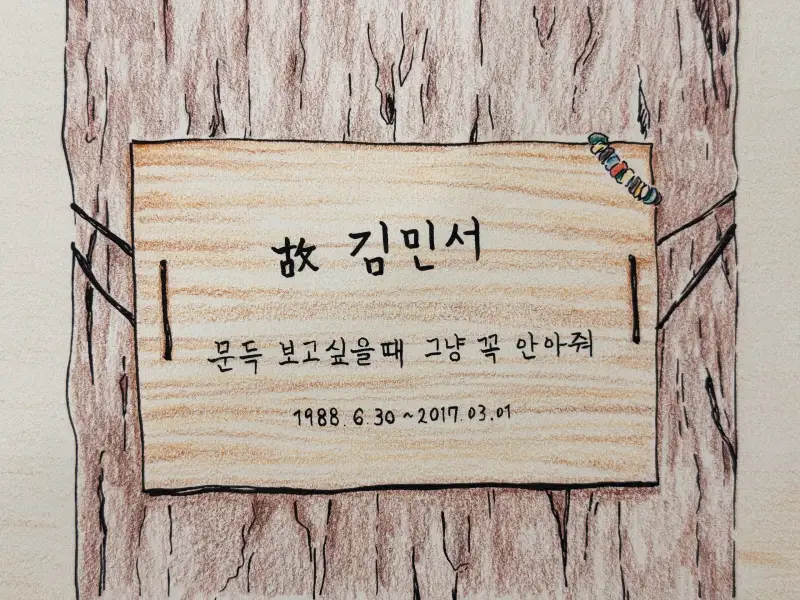 故 김민서
문득 보고싶을때 그냥 꼭 안아줘
1988.6.30~2017.03.01